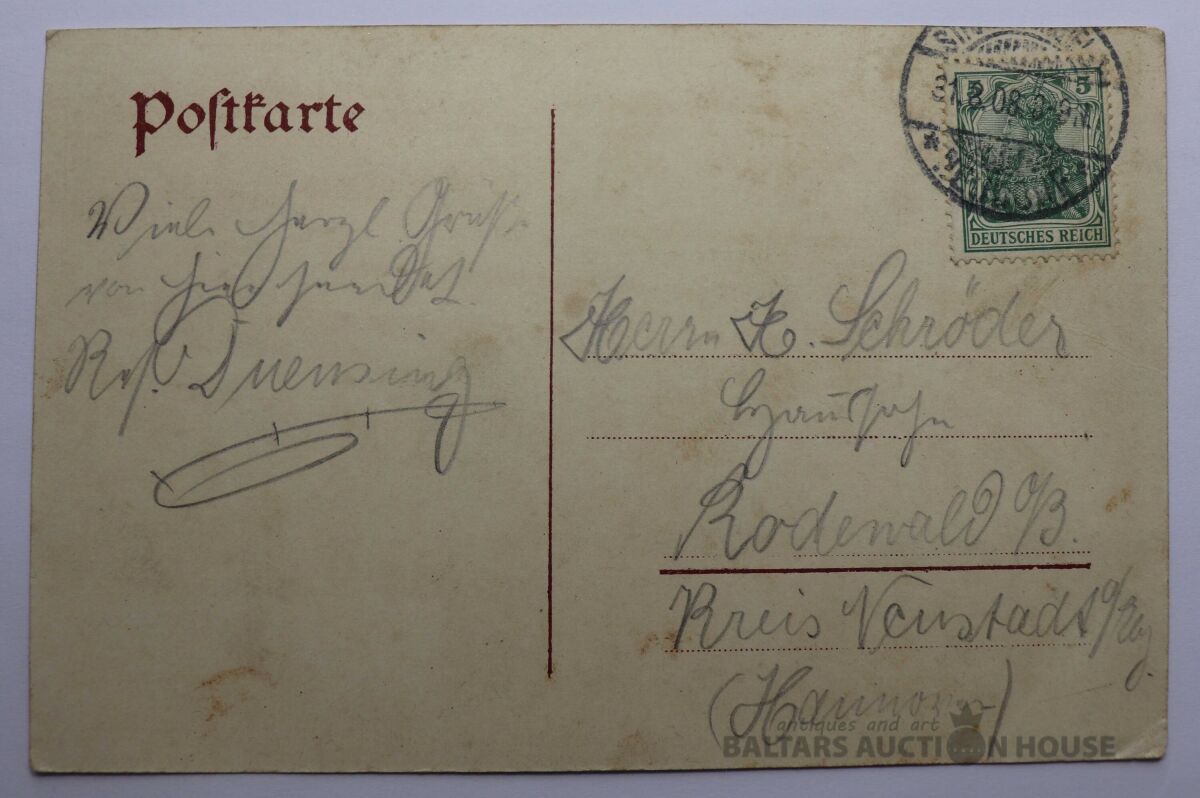 Postkarte
Viele herzl. Grüße
von hier sendet
Res. Duensing
5 5
DEUTSCHES REICH
08
Herrn H. Schröder
Rodewald o/B.
Kreis Neustadt a/Rbg
(Hannover)
antiques and art
BALTARS AUCTION HOUSE